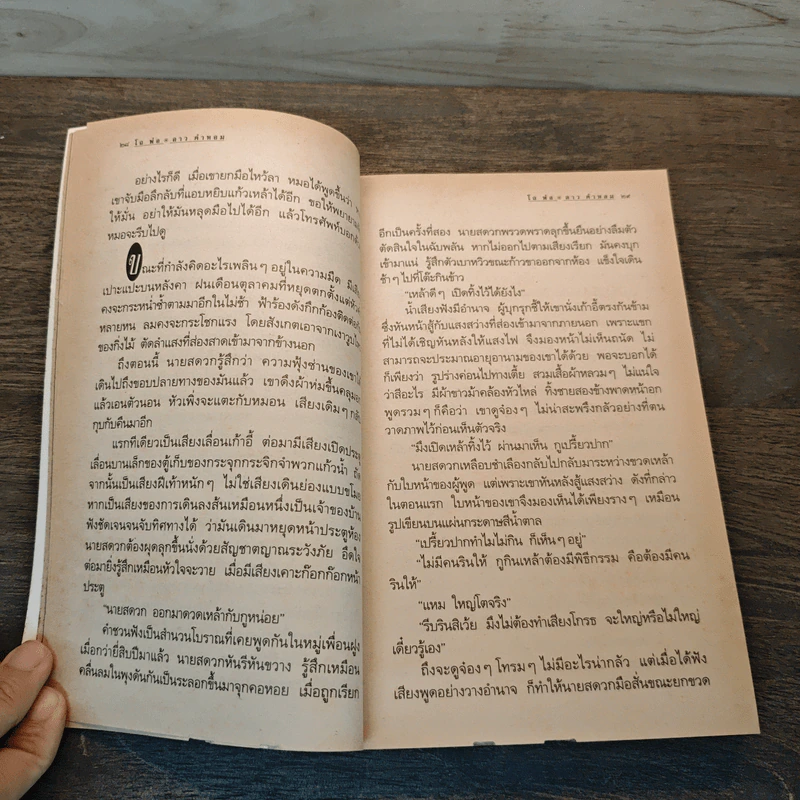 ๒๘ โบ๊ ฟิล ๏ ดาว คำหอม
อย่างไรก็ดี เมื่อเขายกมือไหว้ลา หมอได้พูดขึ้นว่า
เขาจับมือลึกลับที่แอบหยิบแก้วเหล้าได้อีก ขอให้พยายาม
ให้มั่น อย่าให้มันหลุดมือไปได้อีก แล้วโทรศัพท์บอก
หมอจะรีบไปดู
ขณะที่กำลังคิดอะไรเพลินๆ อยู่ในความมืด มีเสียง
เปาะแปะบนหลังคา ฝนเดือนตุลาคมที่หยุดตกตั้งแต่
คงจะกระหน่ำซ้ำตามมาอีกในไม่ช้า ฟ้าร้องดังกึกก้องติดต่อกัน
หลายหน ลมคงจะกระโชกแรง โดยสังเกตเอาจากเงาวูบไหว
ของกิ่งไม้ ตัดลำแสงที่ส่องสาดเข้ามาจากข้างนอก
ถึงตอนนี้ นายสดวกรู้สึกว่า ความฟุ้งซ่านของเขาได้
เดินไปถึงขอบปลายทางของมันแล้ว เขาดึงผ้าห่มขึ้นคลุมอก
แล้วเอนตัวนอน หัวเพิ่งจะแตะกับหมอน เสียงเดิมๆ กลับ
กุบกับคืนมาอีก
แรกทีเดียวเป็นเสียงเลื่อนเก้าอี้ ต่อมามีเสียงเปิดประตู
เลื่อนบานเล็กของตู้เก็บของกระจุกกระจิกจำพวกแก้วน้ำ ถัด
จากนั้นเป็นเสียงฝีเท้าหนักๆ ไม่ใช่เสียงเดินย่องแบบขโมย
หากเป็นเสียงของการเดินลงส้นเหมือนหนึ่งเป็นเจ้าของบ้าน
ฟังชัดเจนจนจับทิศทางได้ ว่ามันเดินมาหยุดหน้าประตูห้อง
นายสดวกต้องผุดลุกขึ้นนั่งด้วยสัญชาตญาณระวังภัย อึดใจ
ต่อมายิ่งรู้สึกเหมือนหัวใจจะวาย เมื่อมีเสียงเคาะก๊อกก๊อกหน้า
ประตู
"นายสดวก ออกมาดวดเหล้ากับกูหน่อย"
คำชวนฟังเป็นสำนวนโบราณที่เคยพูดกันในหมู่เพื่อนฝูง
เมื่อกว่ายี่สิบปีมาแล้ว นายสดวกหันรีหันขวาง รู้สึกเหมือน
คลื่นลมในพุงดันกันเป็นระลอกขึ้นมาจุกคอหอย เมื่อถูกเรียก
โบ๊ ฟิล ๏ ดาว คำหอม ๒๙
อีกเป็นครั้งที่สอง นายสดวกพรวดพราดลุกขึ้นยืนอย่างลืมตัว
ตัดสินใจในฉับพลัน หากไม่ออกไปตามเสียงเรียก มันคงบุก
เข้ามาแน่ รู้สึกตัวเบาหวิวขณะก้าวขาออกจากห้อง แข็งใจเดิน
ช้าๆ ไปที่โต๊ะกินข้าว
"เหล้าดีๆ เปิดทิ้งไว้ได้ยังไง"
น้ำเสียงฟังมีอำนาจ ผู้บุกรุกชี้ให้เขานั่งเก้าอี้ตรงกันข้าม
ซึ่งหันหน้าสู้กับแสงสว่างที่ส่องเข้ามาจากภายนอก เพราะแขก
ที่ไม่ได้เชิญหันหลังให้แสงไฟ จึงมองหน้าไม่เห็นถนัด ไม่
สามารถจะประมาณอายุอานามของเขาได้ด้วย พอจะบอกได้
ก็เพียงว่า รูปร่างค่อนไปทางเตี้ย สวมเสื้อผ้าหลวมๆ ไม่แน่ใจ
ว่าสีอะไร มีผ้าขาวม้าคล้องหัวไหล่ ทิ้งชายสองข้างพาดหน้าอก
พูดรวมๆ ก็คือว่า เขาดูจ๋องๆ ไม่น่าสะพรึงกลัวอย่างที่ตน
วาดภาพไว้ก่อนเห็นตัวจริง
"มึงเปิดเหล้าทิ้งไว้ ผ่านมาเห็น กูเปรี้ยวปาก"
นายสดวกเหลือบชำเลืองกลับไปกลับมาระหว่างขวดเหล้า
กับใบหน้าของผู้พูด แต่เพราะเขาหันหลังสู้แสงสว่าง ดังที่กล่าว
ในตอนแรก ใบหน้าของเขาจึงมองเห็นได้เพียงรางๆ เหมือน
รูปเขียนบนแผ่นกระดาษสีน้ำตาล
"เปรี้ยวปากทำไมไม่กิน ก็เห็นๆ อยู่"
"ไม่มีคนรินให้ กูกินเหล้าต้องมีพิธีกรรม คือต้องมีคน
รินให้"
"แหม ใหญ่โตจริง"
"รีบรินสิเว้ย มึงไม่ต้องทำเสียงโกรธ จะใหญ่หรือไม่ใหญ่
เดี๋ยวรู้เอง"
ถึงจะดูจ๋องๆ โทรมๆ ไม่มีอะไรน่ากลัว แต่เมื่อได้ฟัง
เสียงพูดอย่างวางอำนาจ ก็ทำให้นายสดวกมือสั่นขณะยกขวด